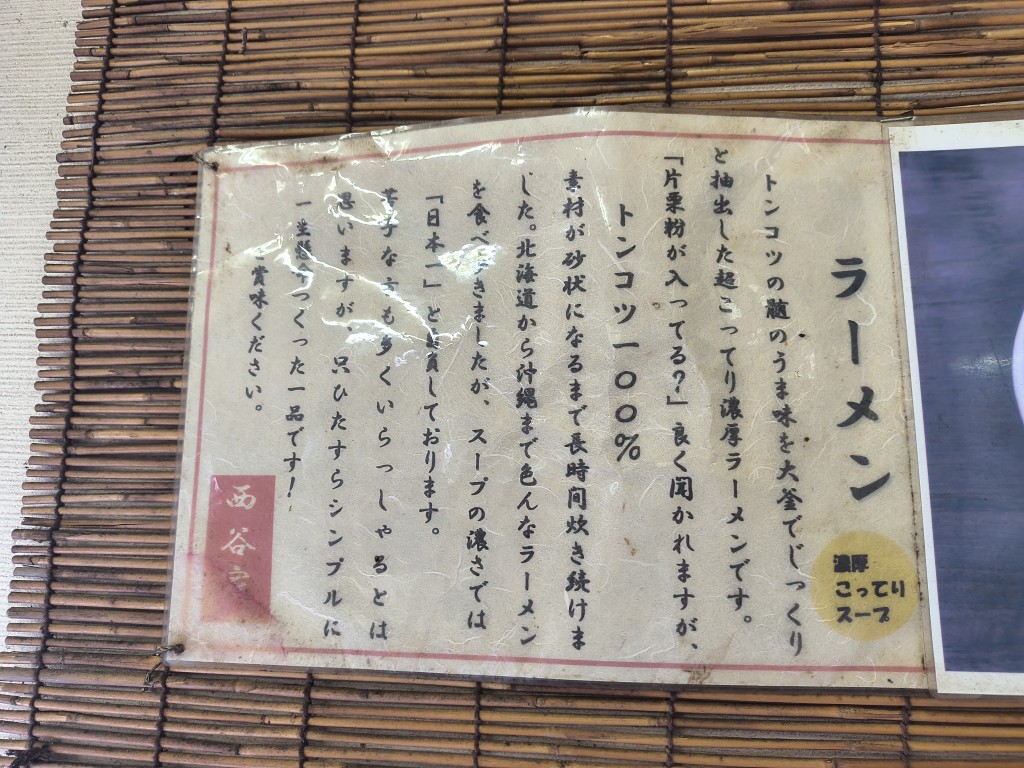 ラーメン
濃厚
こってり
スープ
トンコツの髄のうま味を大釜でじっくり
と抽出した超こってり濃厚ラーメンです。
「片栗粉が入ってる?」良く聞かれますが、
トンコツ一〇〇%
素材が砂状になるまで長時間炊き続けま
した。北海道から沖縄まで色んなラーメン
を食べ きましたが、スープの濃さでは
「日本一」と自負しております。
苦手な方も多くいらっしゃるとは
思いますが、只ひたすらシンプルに
一生懸 つくった一品です!
賞味ください。
西谷家